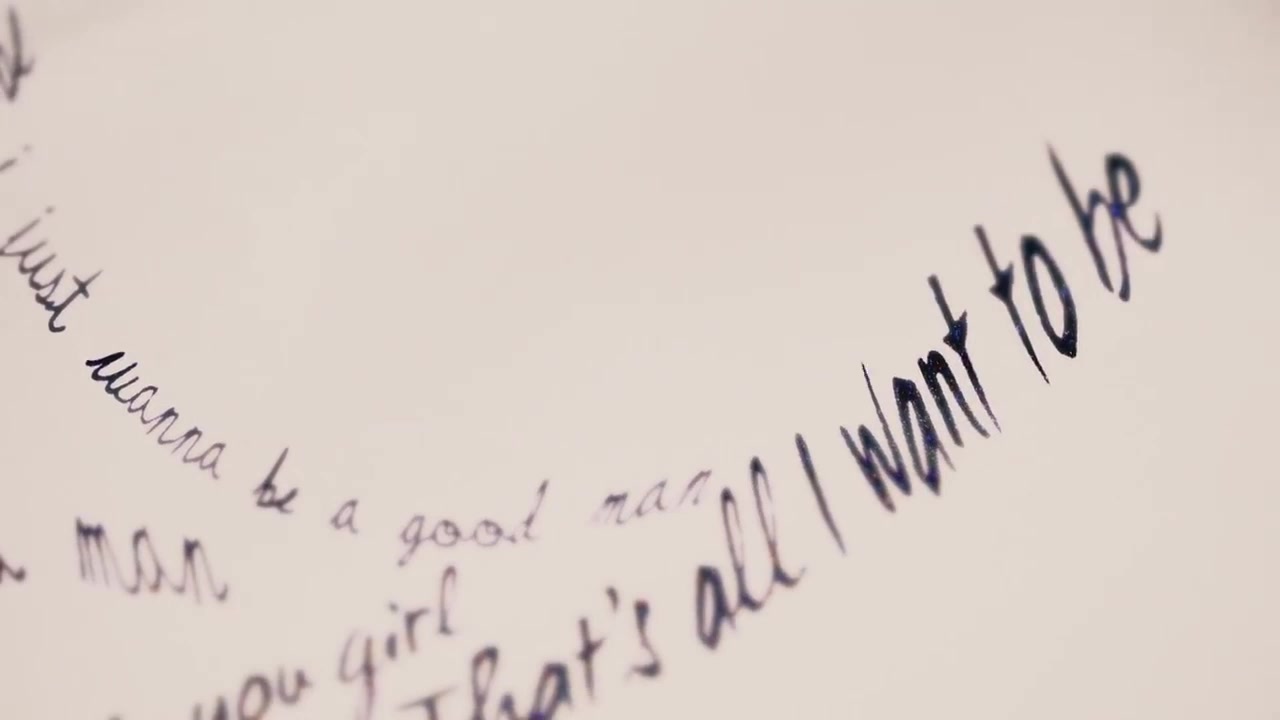 i just wanna be a good man
man
you girl
That's all I want to be